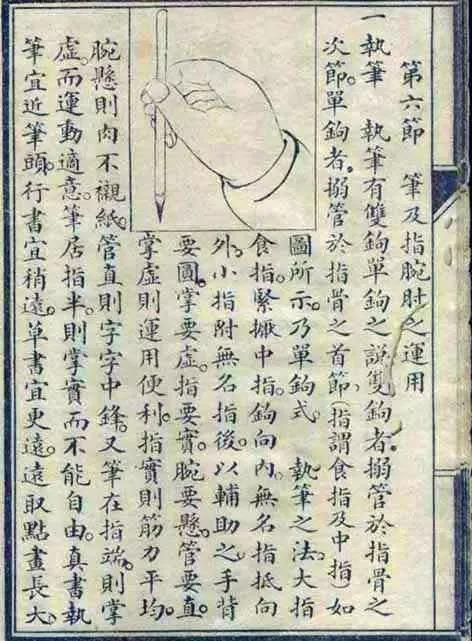 第六節　筆及指腕肘之運用
一執筆　執筆有雙鉤單鉤之説雙鉤者。搦管於指骨之
次節。單鉤者。搦管於指骨之首節。(指謂食指及中指)如
圖所示。乃單鉤式。　執筆之法。大指
食指。緊攠中指。鉤向內。無名指抵向
外。小指附無名指後。以輔助之。手背
要圓。掌要虛。指要實。腕要懸。管要直。
掌虛則運用便利。指實則筋力平均。
腕懸則肉不襯紙。管直則字字中鋒。又筆在指端。則掌
虛。而運動適意。筆居指半。則掌實而不能自由。真書執
筆宜近筆頭。行書宜稍遠。草書宜更遠。遠取點畫長大。